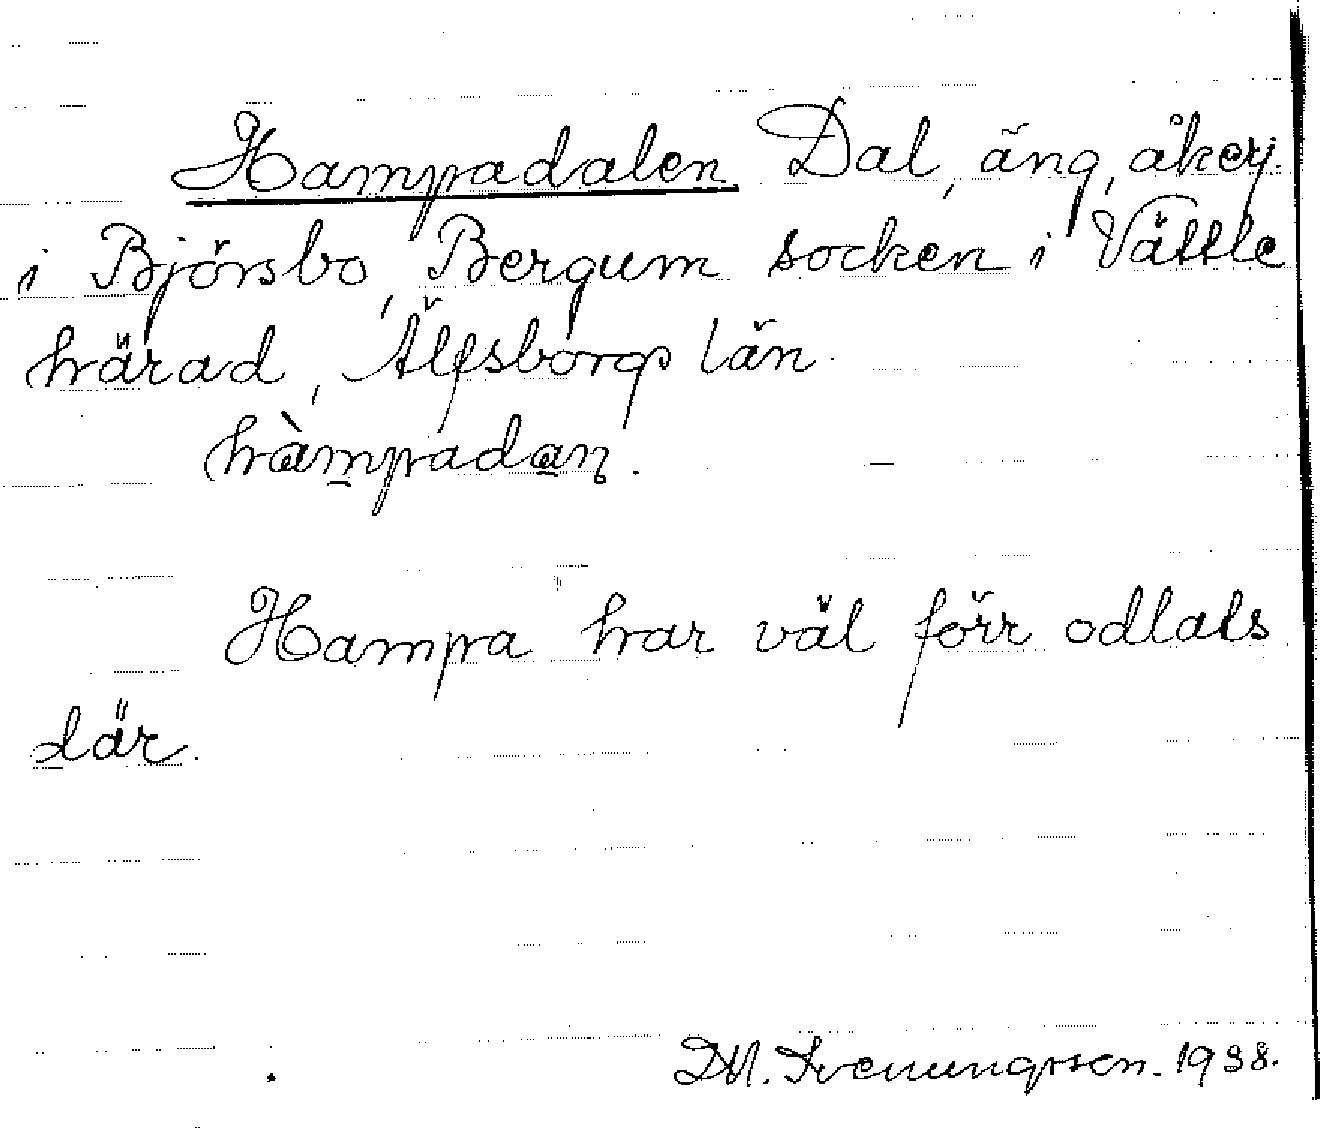 Hampadalen Dal, äng, åker.
i Björsbo, Bergum socken i Vättle
härad, Älfsborgs län.
hàmpadan.
Hampa har väl förr odlats
där.
D.M. Svenungsson. 1938.